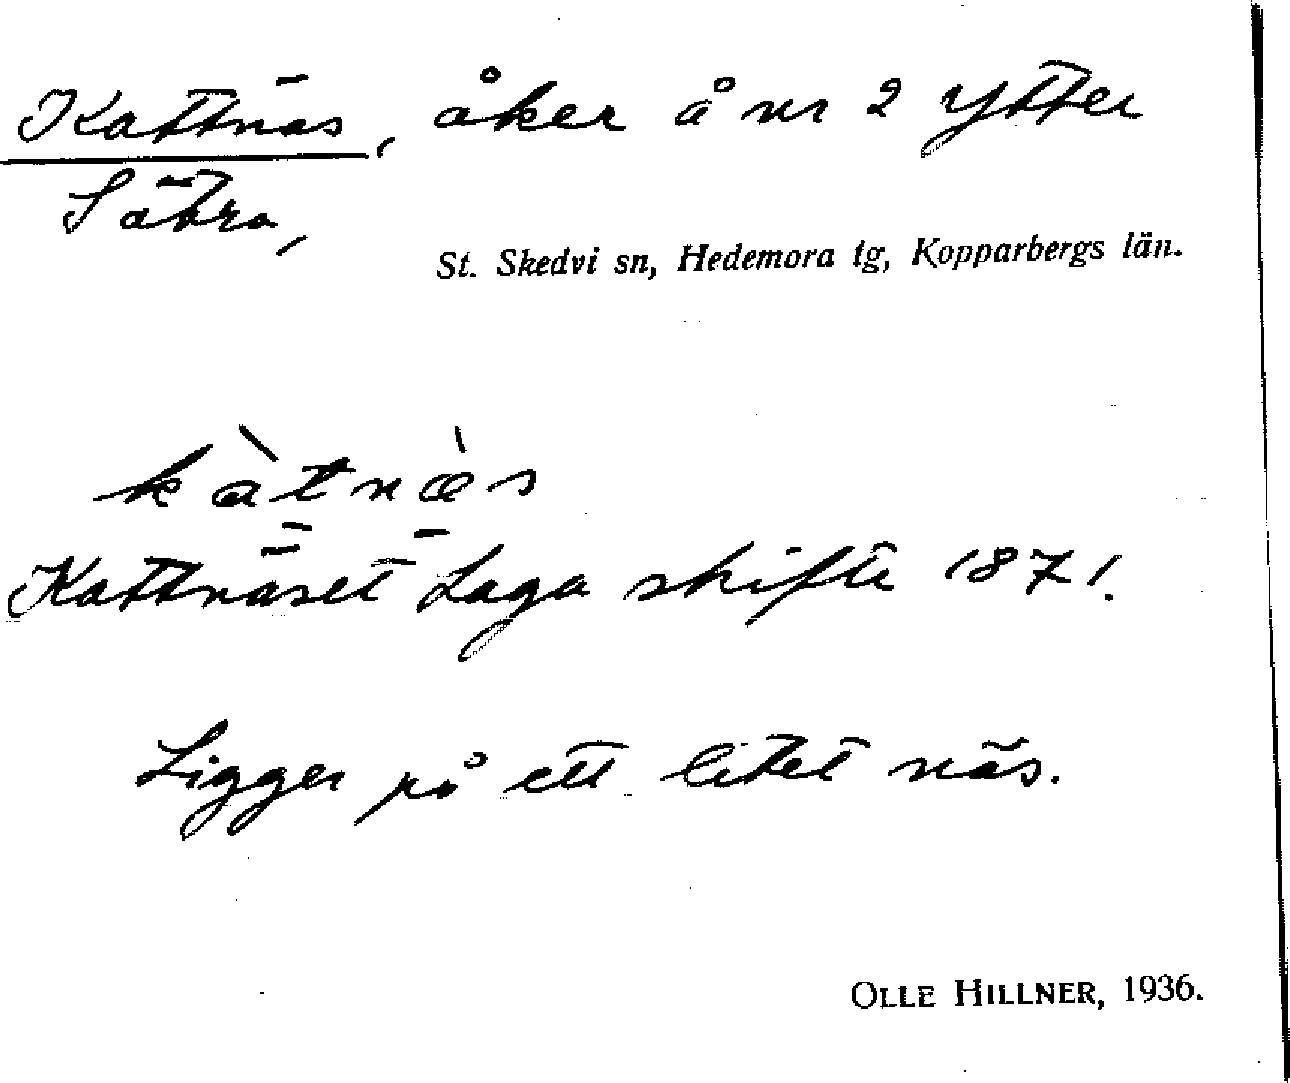 Kattnäs, åker å nr 2 Ytter
Sätra,
St. Skedvi sn, Hedemora tg, Kopparbergs län.
kàtnæ̀s
Kattnäset Laga skifte 1871.
Ligger på ett litet näs.
OLLE HILLNER, 1936.